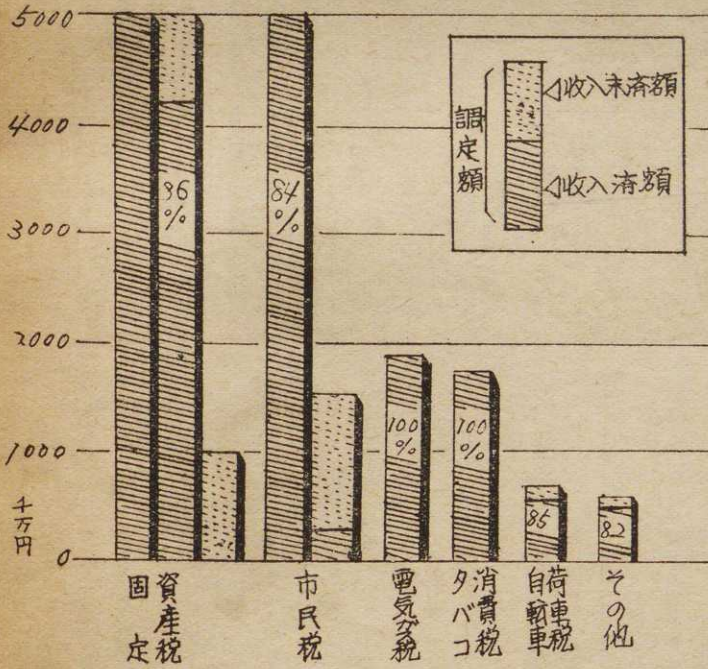 5000
4000
3000
2000
1000
0
千万円
調定額
◁收入未済額
◁收入済額
96
%
84
%
100
%
100
%
85
82
固定
資産税
市民税
電気ガス税
タバコ
消費税
自転車
荷車税
その他